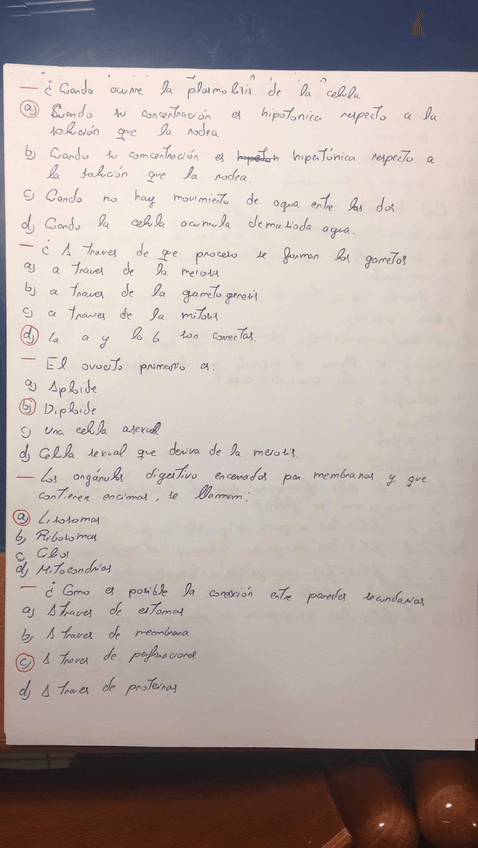 — ¿ Cuando ocurre la "plasmolisis" de la "celula
a) Cuando su concentración es hipotonica respecto a la
solución que la rodea.
b) Cuando su concentración es hipertónica respecto a
la solución que la rodea
c) Cando no hay movimiento de agua entre los dos
d) Cuando la celula acumula demasiada agua.
— ¿ A traves de que proceso se forman los gametos
a) a traves de la meiosis
b) a traves de la gametogenesis
c) a traves de la mitosis
d) La a y la b son correctas.
— El ovocito primario es:
a) Aploide
b) Diploide
c) una celula asexual
d) Celula sexual que deriva de la meiosis
— Los orgánulos digestivo encerrados por membranas y que
contienen encimas, se llaman:
a) Lisosomas
b) Ribosomas
c) Cilios
d) Mitocondrias
— ¿ Como es posible la conexión entre paredes secundarias
a) A traves de estomas
b) A traves de membrana
c) A traves de perforaciones
d) A traves de proteinas